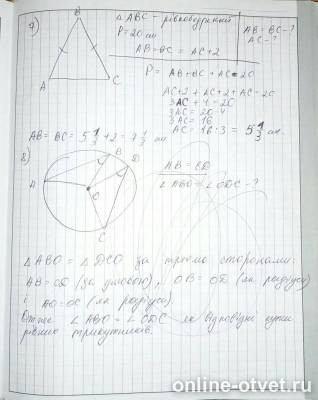 7)
△ABC - рівнобедрений
P = 20 см
AB = BC = AC + 2
AB = BC - ?
AC - ?
B
A
C
P = AB + BC + AC = 20
AC + 2 + AC + 2 + AC = 20
3AC + 4 = 20
3AC = 20 - 4
3AC = 16
AC = 16 : 3 = 5 1/3 см.
AB = BC = 5 1/3 + 2 = 7 1/3 см.
8)
B
D
A
O
C
AB = CD
∠ABO = ∠CDC - ?
△ABO = △DCO за трьома сторонами:
AB = CD (за умовою), OB = OD (як радіуси)
і AO = OC (як радіуси)
Отже ∠ABO = ∠CDC як відповідні кути
рівних трикутників.
online-otvet.ru